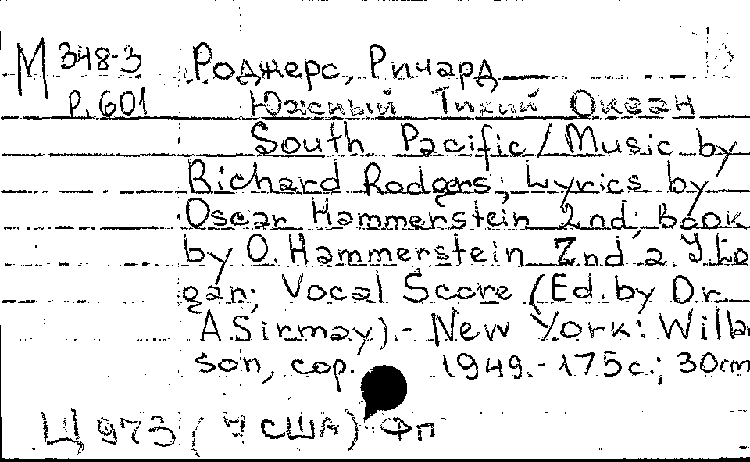 М 348-3 Роджерс, Ричард
Р.601 Южный Тихий Океан
South Pacific / Music by
Richard Rodgers; Lyrics by
Oscar Hammerstein 2nd; Book
by O. Hammerstein 2nd a. J. Lo
gan; Vocal Score (Ed. by Dr
A Sirmay).- New York: Willam
son, cop. 1949.- 175 с.; 30cm
Ц 973 (7 США) Фп